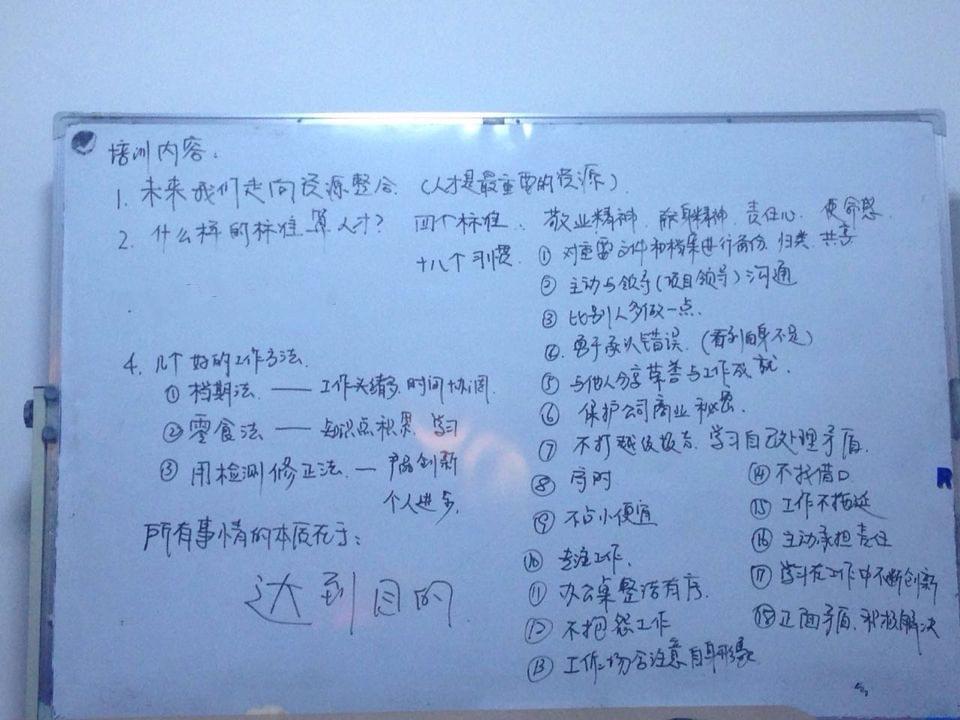 培训内容：
1. 未来我们走向资源整合 （人才是最重要的资源）.
2. 什么样的标准算人才？ 四个标准： 敬业精神 献身精神 责任心 使命感
十八个习惯
① 对重要文件和档案进行备份 归类 共享
② 主动与领导（项目领导）沟通
③ 比别人多做一点.
④ 勇于承认错误.（看到自身不足）
⑤ 与他人分享荣誉与工作成就.
⑥ 保护公司商业秘密.
⑦ 不打越级报告. 学习自己处理矛盾
⑧ 守时
⑨ 不占小便宜
⑩ 专注工作.
⑪ 办公桌整洁有序.
⑫ 不抱怨工作
⑬ 工作场合注意自身形象
⑭ 不找借口
⑮ 工作不拖延
⑯ 主动承担责任
⑰ 学习在工作中不断创新
⑱ 正面矛盾. 积极解决
4. 几个好的工作方法.
① 档期法 —— 工作头绪多. 时间协调.
② 零食法 —— 知识点积累. 学习
③ 用检测修正法. — 产品创新
个人进步.
所有事情的本质在于：
达到目的
R